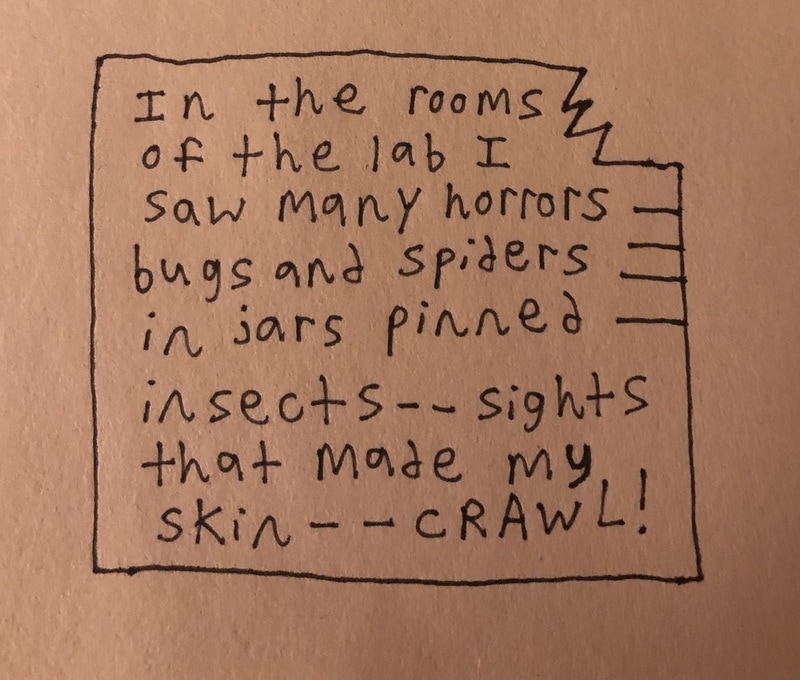 In the rooms
of the lab I
saw many horrors
bugs and spiders
in jars pinned
insects-- sights
that made my
skin -- CRAWL!